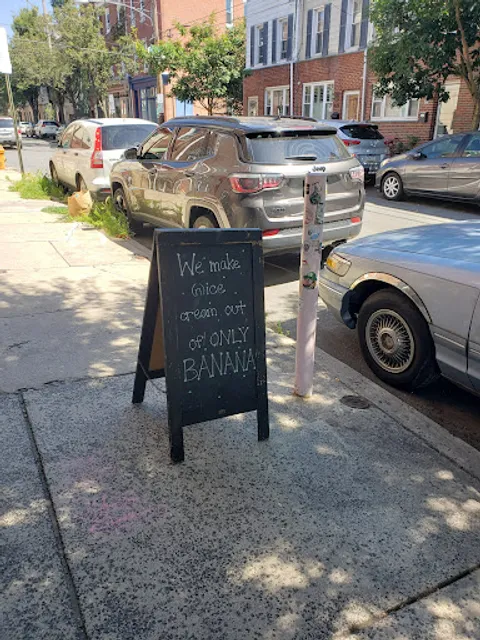 Jeep
We make
(n)ice
cream out
of! ONLY
BANANA